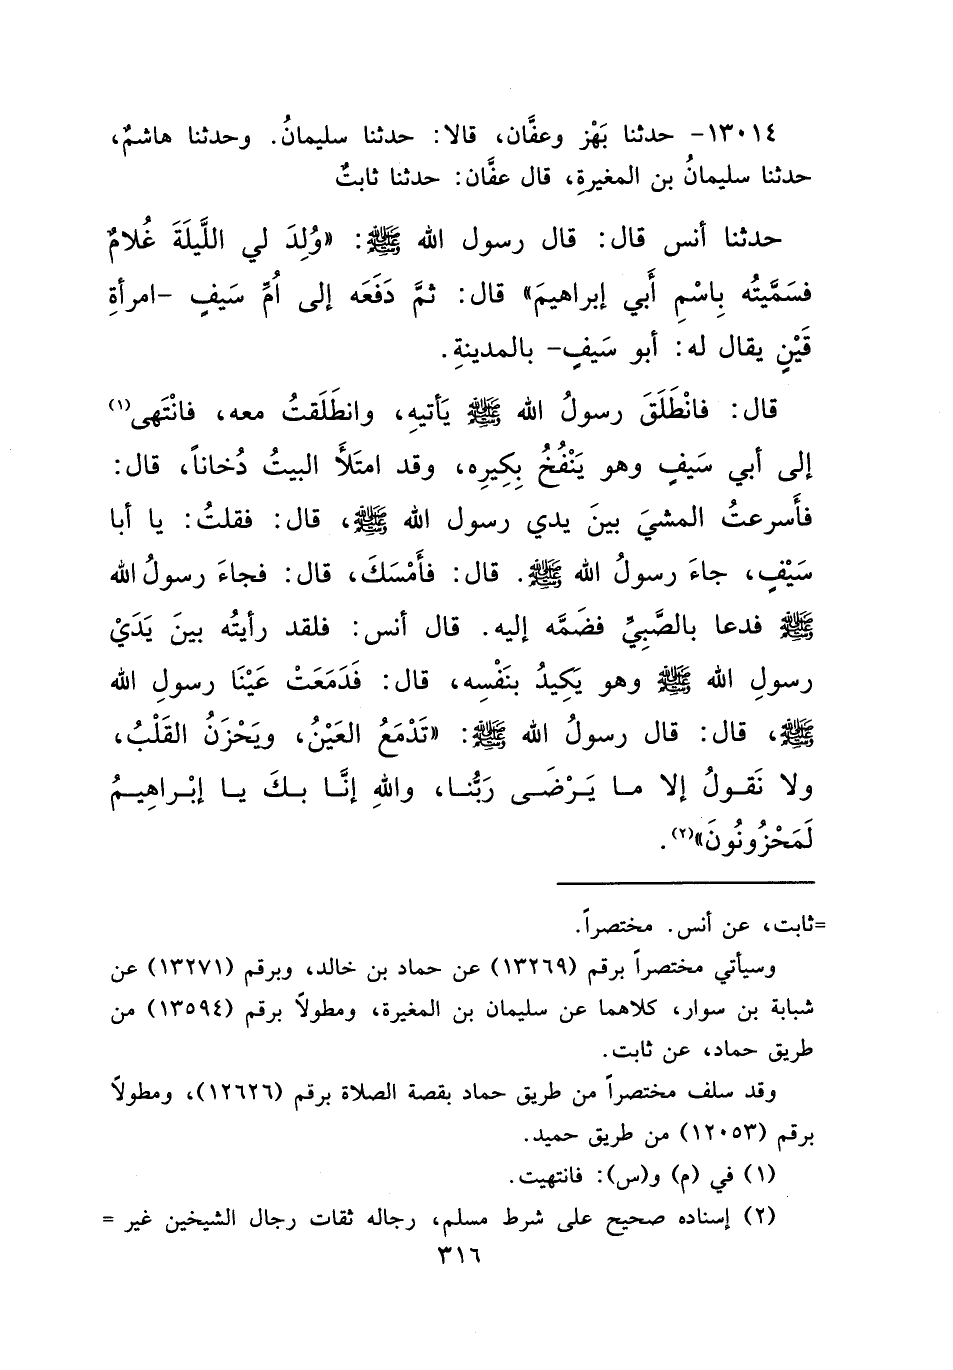 ١٣٠١٤- حدثنا بَهْز وعفَّان، قالا: حدثنا سليمانُ. وحدثنا هاشمٌ،
حدثنا سليمانُ بن المغيرةِ، قال عفَّان: حدثنا ثابتٌ
حدثنا أنس قال: قال رسول الله ﷺ: «وُلِدَ لي اللَّيلَةَ غُلامٌ
فسَمَّيتُه بِاسْمِ أَبي إبراهيمَ» قال: ثمَّ دَفَعَه إلى أُمِّ سَيفٍ -امرأةِ
قَيْنٍ يقال له: أبو سَيفٍ- بالمدينةِ.
قال: فانْطَلَقَ رسولُ الله ﷺ يَأتيهِ، وانطَلَقتُ معه، فانْتَهى(١)
إلى أبي سَيفٍ وهو يَنْفُخُ بِكيرِه، وقد امتَلأَ البيتُ دُخاناً، قال:
فأَسرعتُ المشيَ بينَ يدي رسول الله ﷺ، قال: فقلتُ: يا أبا
سَيْفٍ، جاءَ رسولُ الله ﷺ. قال: فأَمْسَكَ، قال: فجاءَ رسولُ الله
ﷺ فدعا بالصَّبِيِّ فضَمَّه إليه. قال أنس: فلقد رأيتُه بينَ يَدَيْ
رسولِ الله ﷺ وهو يَكِيدُ بنَفْسِه، قال: فَدَمَعَتْ عَيْنَا رسولِ الله
ﷺ، قال: قال رسولُ الله ﷺ: «تَدْمَعُ العَيْنُ، ويَحْزَنُ القَلْبُ،
ولا نَقولُ إلا ما يَرْضَى رَبُّنا، واللهِ إنَّا بكَ يا إبْراهِيمُ
لَمَحْزُونُونَ»(٢).
=ثابت، عن أنس. مختصراً.
وسيأتي مختصراً برقم (١٣٢٦٩) عن حماد بن خالد، وبرقم (١٣٢٧١) عن
شبابة بن سوار، كلاهما عن سليمان بن المغيرة، ومطولاً برقم (١٣٥٩٤) من
طريق حماد، عن ثابت.
وقد سلف مختصراً من طريق حماد بقصة الصلاة برقم (١٢٦٢٦)، ومطولاً
برقم (١٢٠٥٣) من طريق حميد.
(١) في (م) و(س): فانتهيت.
(٢) إسناده صحيح على شرط مسلم، رجاله ثقات رجال الشيخين غير =
٣١٦